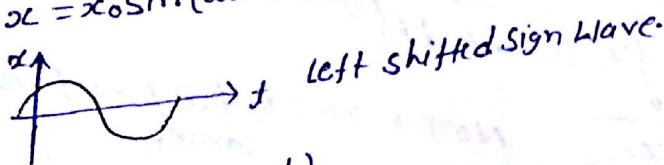 x = x₀ sin (
x
t
Left shifted Sign Wave.